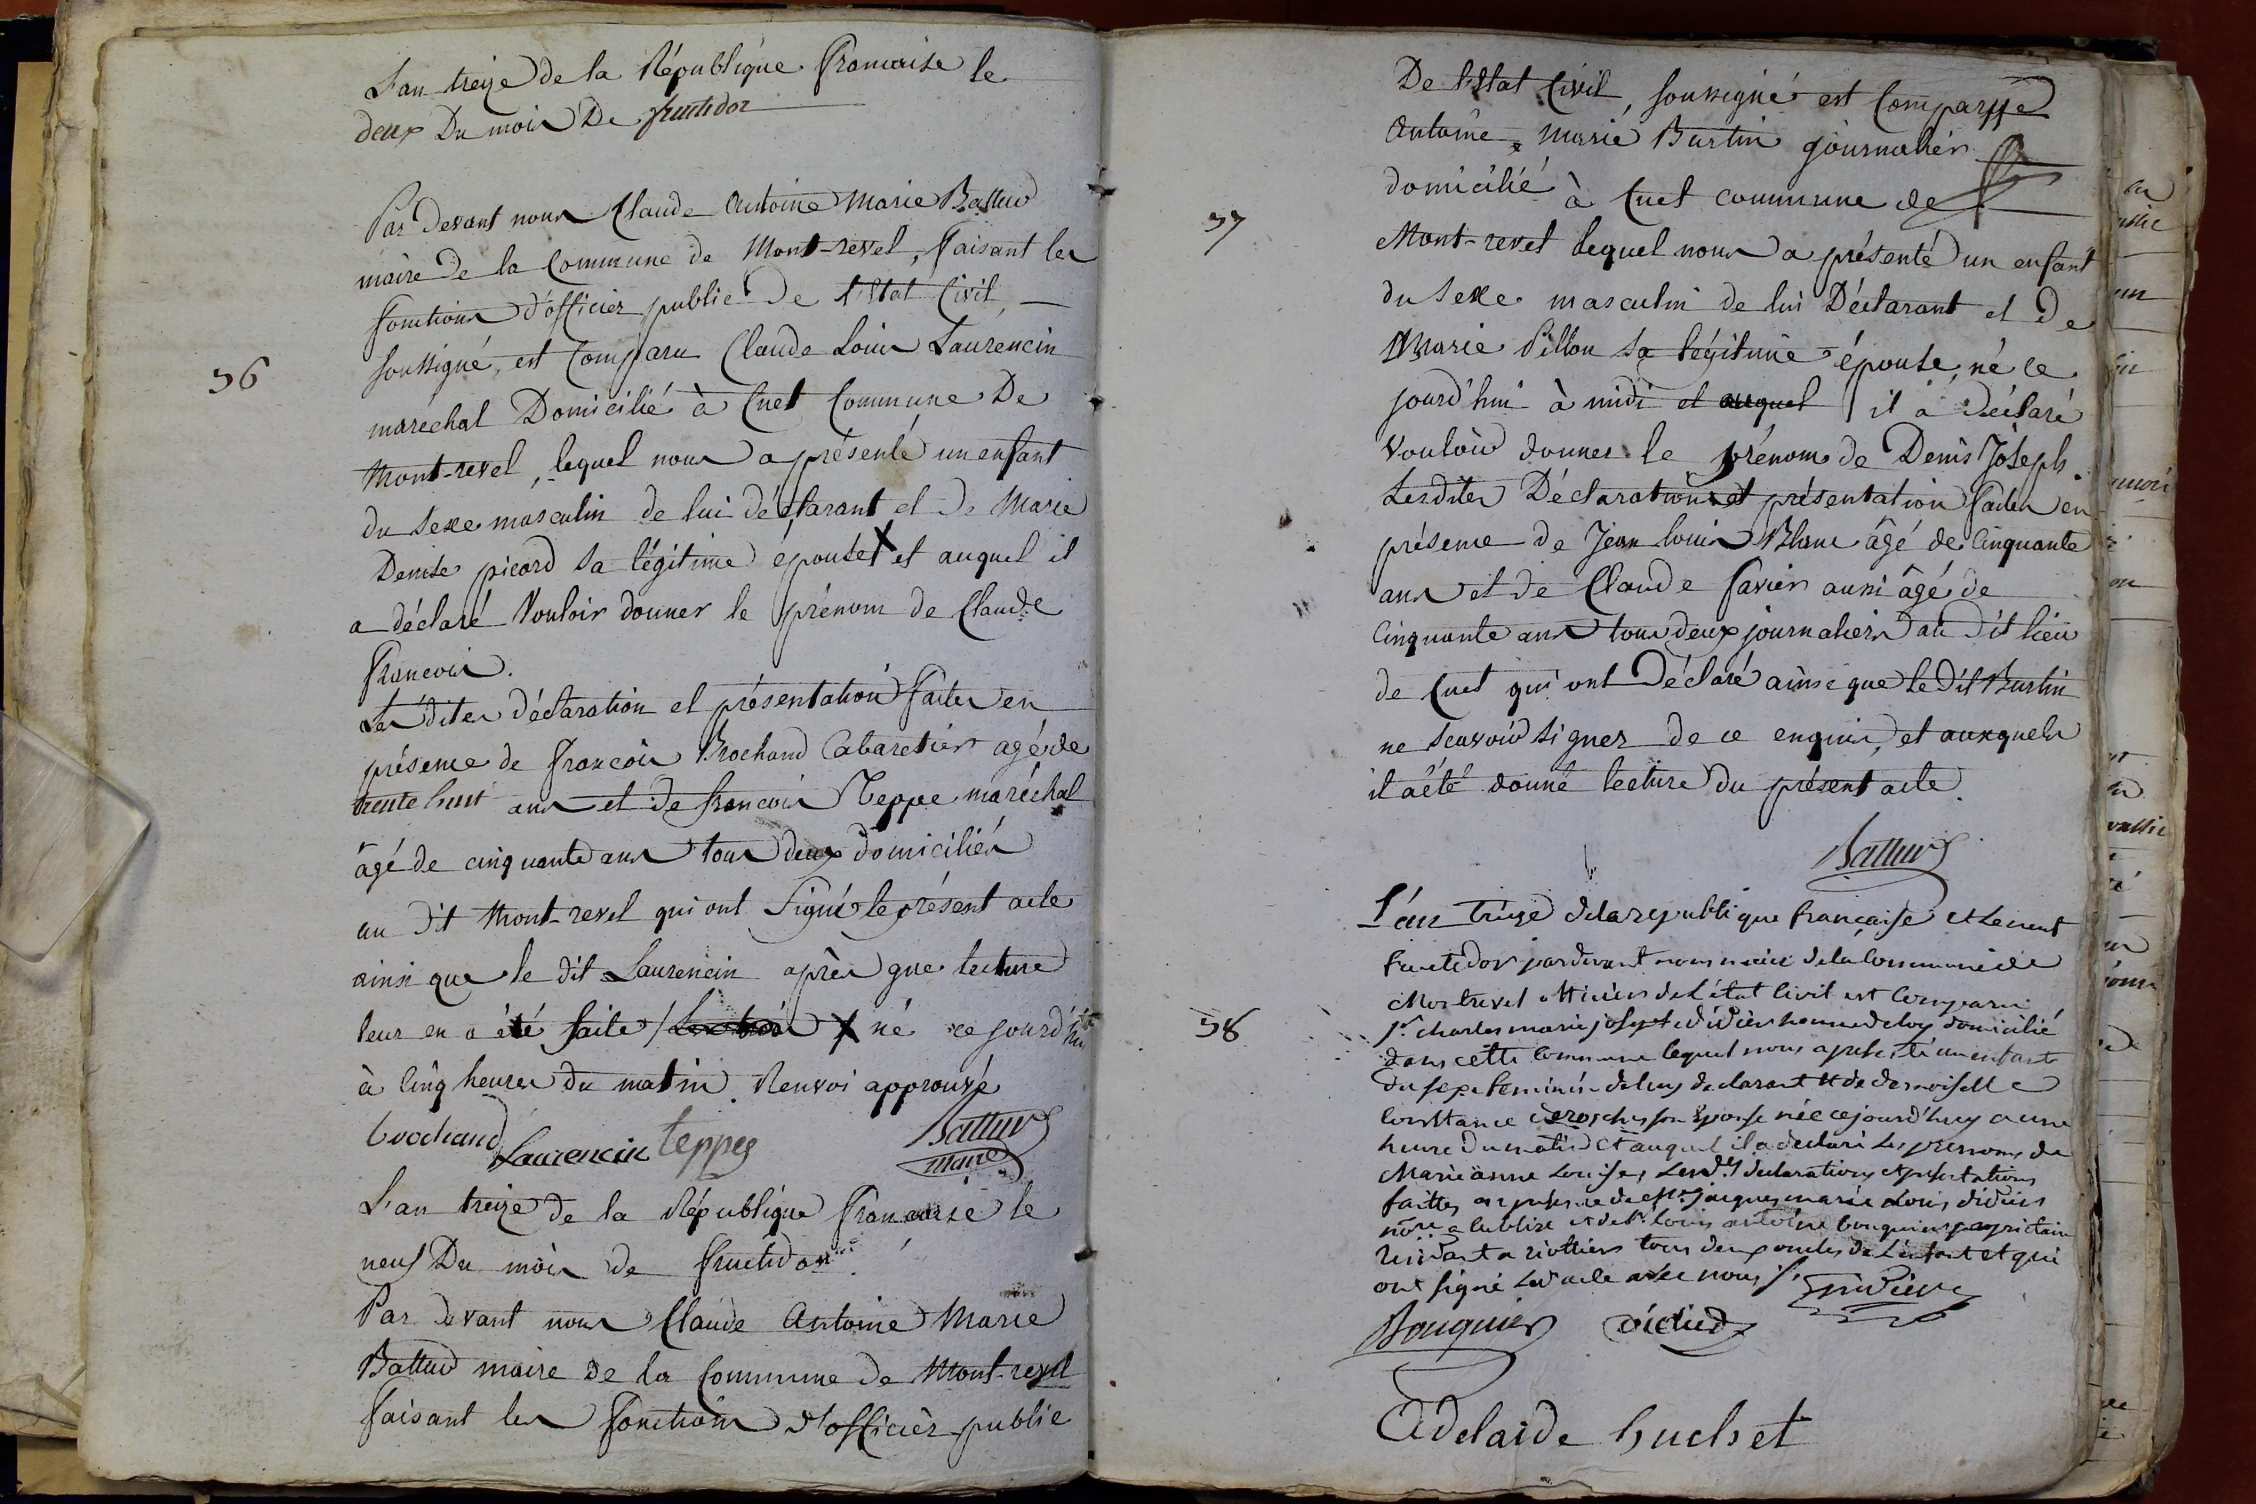 L'an treize de la République francaise le
deux Du mois De fructidor
Par devant nous Claude Antoine Marie Battur
maire de la Commune de Mont-revel, faisant les
fonctions d'officier public De l'Etat Civil
56
soussigné, est Comparu Claude Louis Laurencin
maréchal Domicilié à Cuet Commune De
Mont-revel, lequel nous a présenté un enfant
du sexe masculin de lui déclarant et de Marie
Denise picard sa légitime épouse X et auquel il
a déclaré Vouloir donner le prénom de Claude
francois.
Les dites déclaration et présentation faites en
présence de francois Brochand Cabaretier agé de
trente huit ans et de francois Teppe maréchal
âgé de cinquante ans tous deux domiciliés
au dit Mont-revel qui ont signé le présent acte
ainsi que le dit Laurencin après que lecture
leur en a été faite / X né ce jourd'hui
à cinq heures du matin. Renvoi approuvé
brochand Laurencin teppe Battur
maire
L'an treize de la République francaise le
neuf Du mois de fructidor
Par devant nous Claude Antoine Marie
Battur maire de la Commune de Mont-revel
faisant les fonctions d'officier public
De l'Etat Civil, soussigné est Comparu
Antoine Marie Burtin journalier
domicilié à Cuet commune de
57
Mont-revel lequel nous a présenté un enfant
du sexe masculin de lui Déclarant et de
Marie Pillon sa légitime épouse, né ce
jourd'hui à midi et auquel il a déclaré
vouloir donner le prénom de Denis Joseph.
Lesdites Déclaration et présentation faites en
présence de Jean louis Blanc âgé de cinquante
ans et de Claude favier aussi âgé de
cinquante ans tous deux journaliers au dit lieu
de Cuet qui ont Déclaré ainsi que le dit Burtin
ne sçavoir signer de ce enquis, et auxquels
il a été donné lecture du présent acte.
Battur
L'an treize de la republique française et le
fructidor pardevant nous maire de la Commune de
Montrevel officier de L'état Civil est Comparu
58
Sr. charles marie joseph didier domicilié
dans cette commune lequel nous a présenté un enfant
du sexe feminin de luy declarant et de demoiselle
Constance son épouse née cejourd'huy a une
heure du matin et auquel il a declaré les prenoms de
Marie anne Louise, Lesdtes declarations et présentations
faittes en présence de jacques marie Louis didier
public et de sr. Louis antoine bouquin propriétaire
residant a tous deux oncles de L'enfant et qui
ont signé le acte avec nous
Bouquin didier
Adelaide huchet